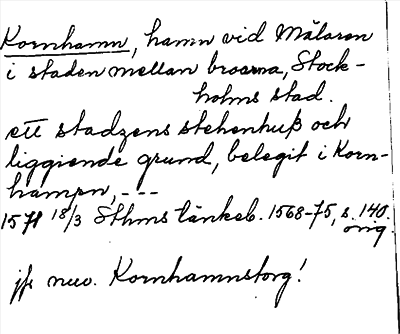 Kornhamn, hamn vid Mälaren
i staden mellan broarna, Stock-
holms stad.
ett stadzens stehenhuß och
liggiende grund, belegit i Korn-
hampn, ---
1571 18/3 Sthms tänkeb. 1568-75, s. 140.
orig.
jfr nuv. Kornhamnstorg!